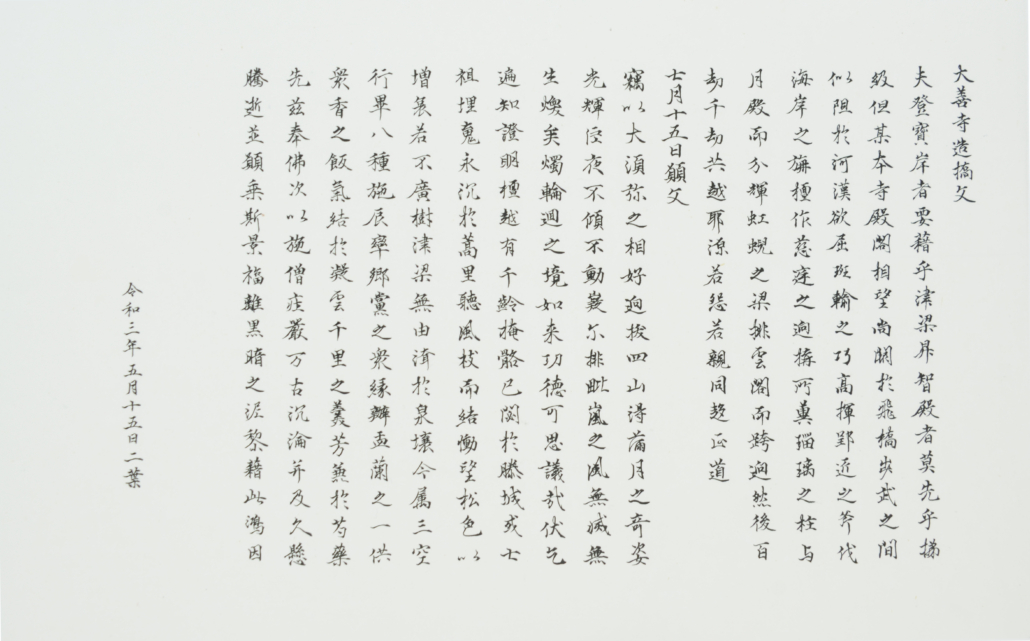 大善寺造橋文
夫登寶岸者要藉乎津梁昇智殿者莫先乎梯
級但某本寺殿閣相望尚闕於飛橋歩武之間
似阻於河漢欲屈班輸之巧高揮郢近之斧伐
海岸之旃檀作慈庭之迥搆所冀瑠璃之柱与
月殿而分輝虹蜺之梁排雲閣而跨迥然後百
劫千劫共越耶源若怨若親同超正道
七月十五日願文
竊以大湏弥之相好迥抜四山得蒲月之奇姿
光輝徑夜不傾不動嶷尓排毗嵐之風無滅無
生煥矣燭輪迴之境如来功德可思議哉伏乞
遍知證明檀越有千齡掩骼已閟於滕城或七
祖埋魂永沉於蒿里聽風枝而結慟望松色以
增哀若不廣樹津梁無由濟於泉壤今属三空
行畢八種施辰率鄉黨之衆縁辦盂蘭之一供
衆香之飯氣結於凝雲千里之羹芳兼於芍藥
先兹奉佛次以施僧疰嚴万古沉淪并及久懸
騰逝並願乗斯景福離黒暗之泥黎藉此鴻因
令和三年五月十五日二葉